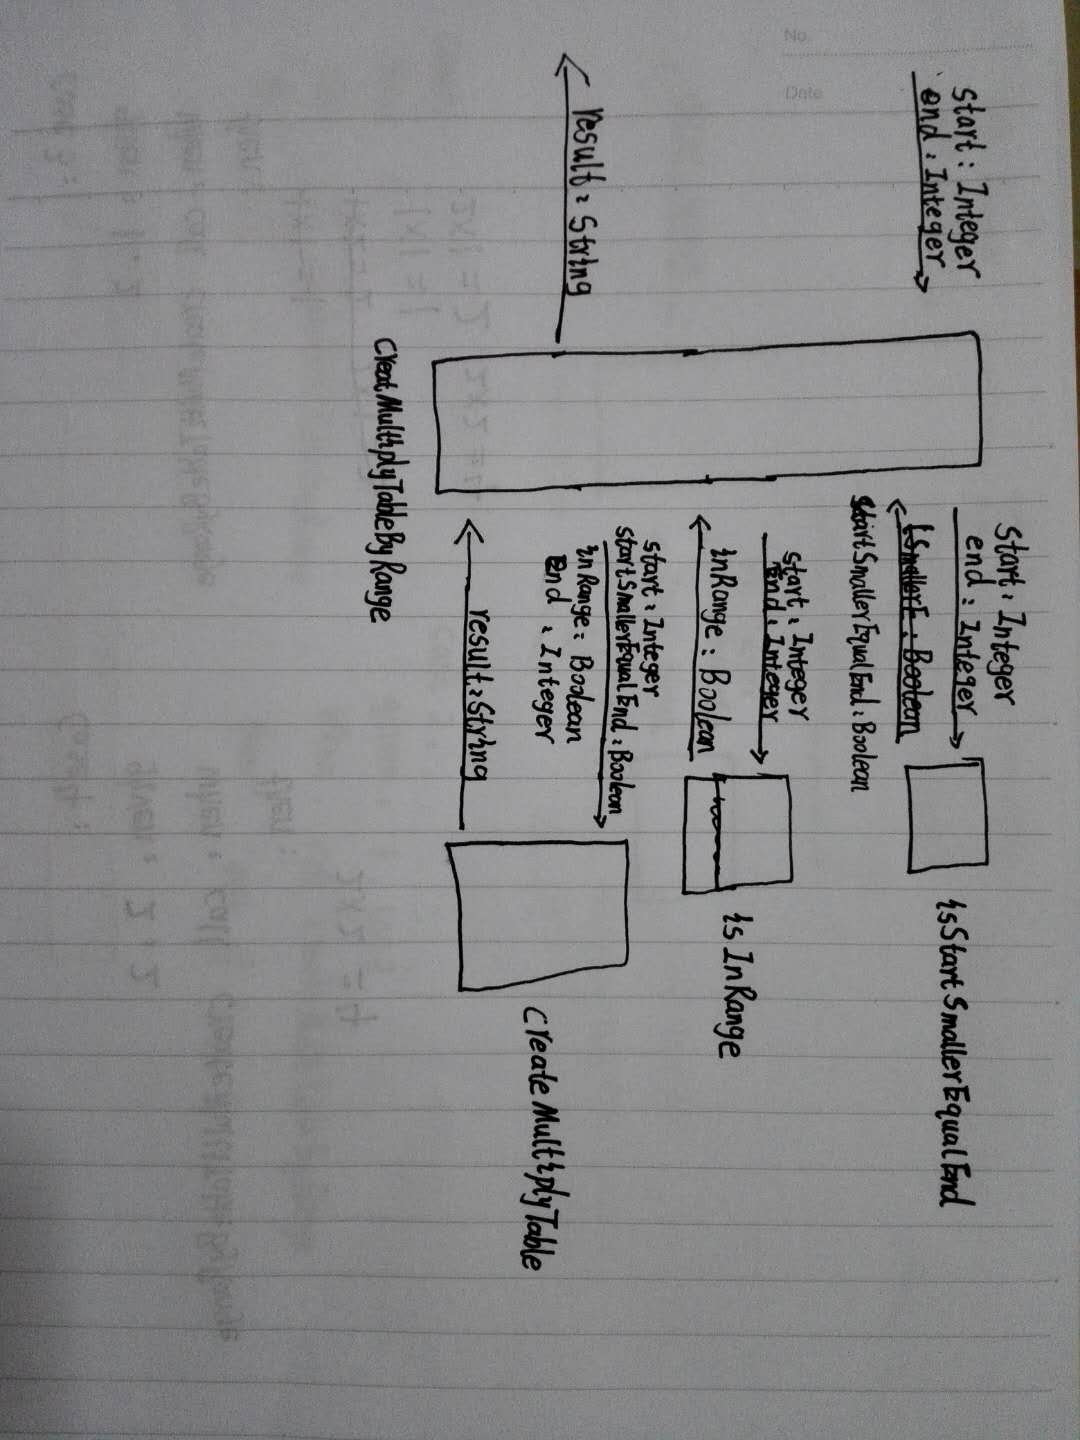 No.
Date
start : Integer
end : Integer
result : String
CreatMultiplyTableByRange
start : Integer
end : Integer
isSmallerE : Boolean
startSmallerEqualEnd : Boolean
isStartSmallerEqualEnd
start : Integer
end : Integer
inRange : Boolean
isInRange
start : Integer
startSmallerEqualEnd : Boolean
inRange : Boolean
end : Integer
result : String
CreateMultiplyTable